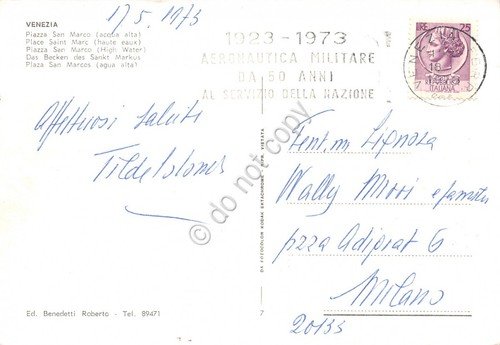 VENEZIA
Piazza San Marco (acqua alta)
Place Saint Marc (haute eaux)
Piazza San Marco (High Water)
Das Becken des Sankt Markus
Plaza San Marcos (agua alta)
17 5. 1973
1923-1973
AERONAUTICA MILITARE
DA 50 ANNI
AL SERVIZIO DELLA NAZIONE
LIRE 25
ITALIANA
VENEZIA
1973
Affettuosi saluti
Tilde
Gent.mi Signora
Wally Mori e famiglia
pzza Adigrat 6
Milano
20133
do not copy
DA FOTOCOLOR KODAK EKTACHROME
RIPR. VIETATA
Ed. Benedetti Roberto - Tel. 89471
7